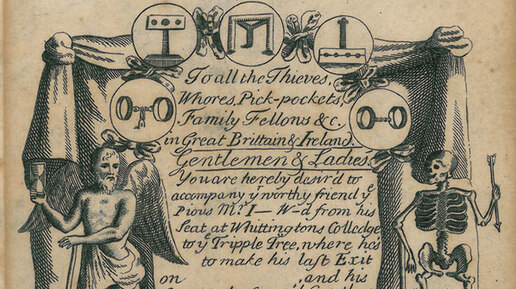 To all the Thieves,
Whores, Pick-pockets,
Family Fellons &c.
in Great Brittain & Ireland.
Gentlemen & Ladies
You are hereby desir'd to
accompany yͤ worthy friend yͤ
Pious Mͬ. I— W—d from his
Seat at Whittingtons Colledge
to yͤ Tripple Tree, where he's
to make his last Exit
on , and his